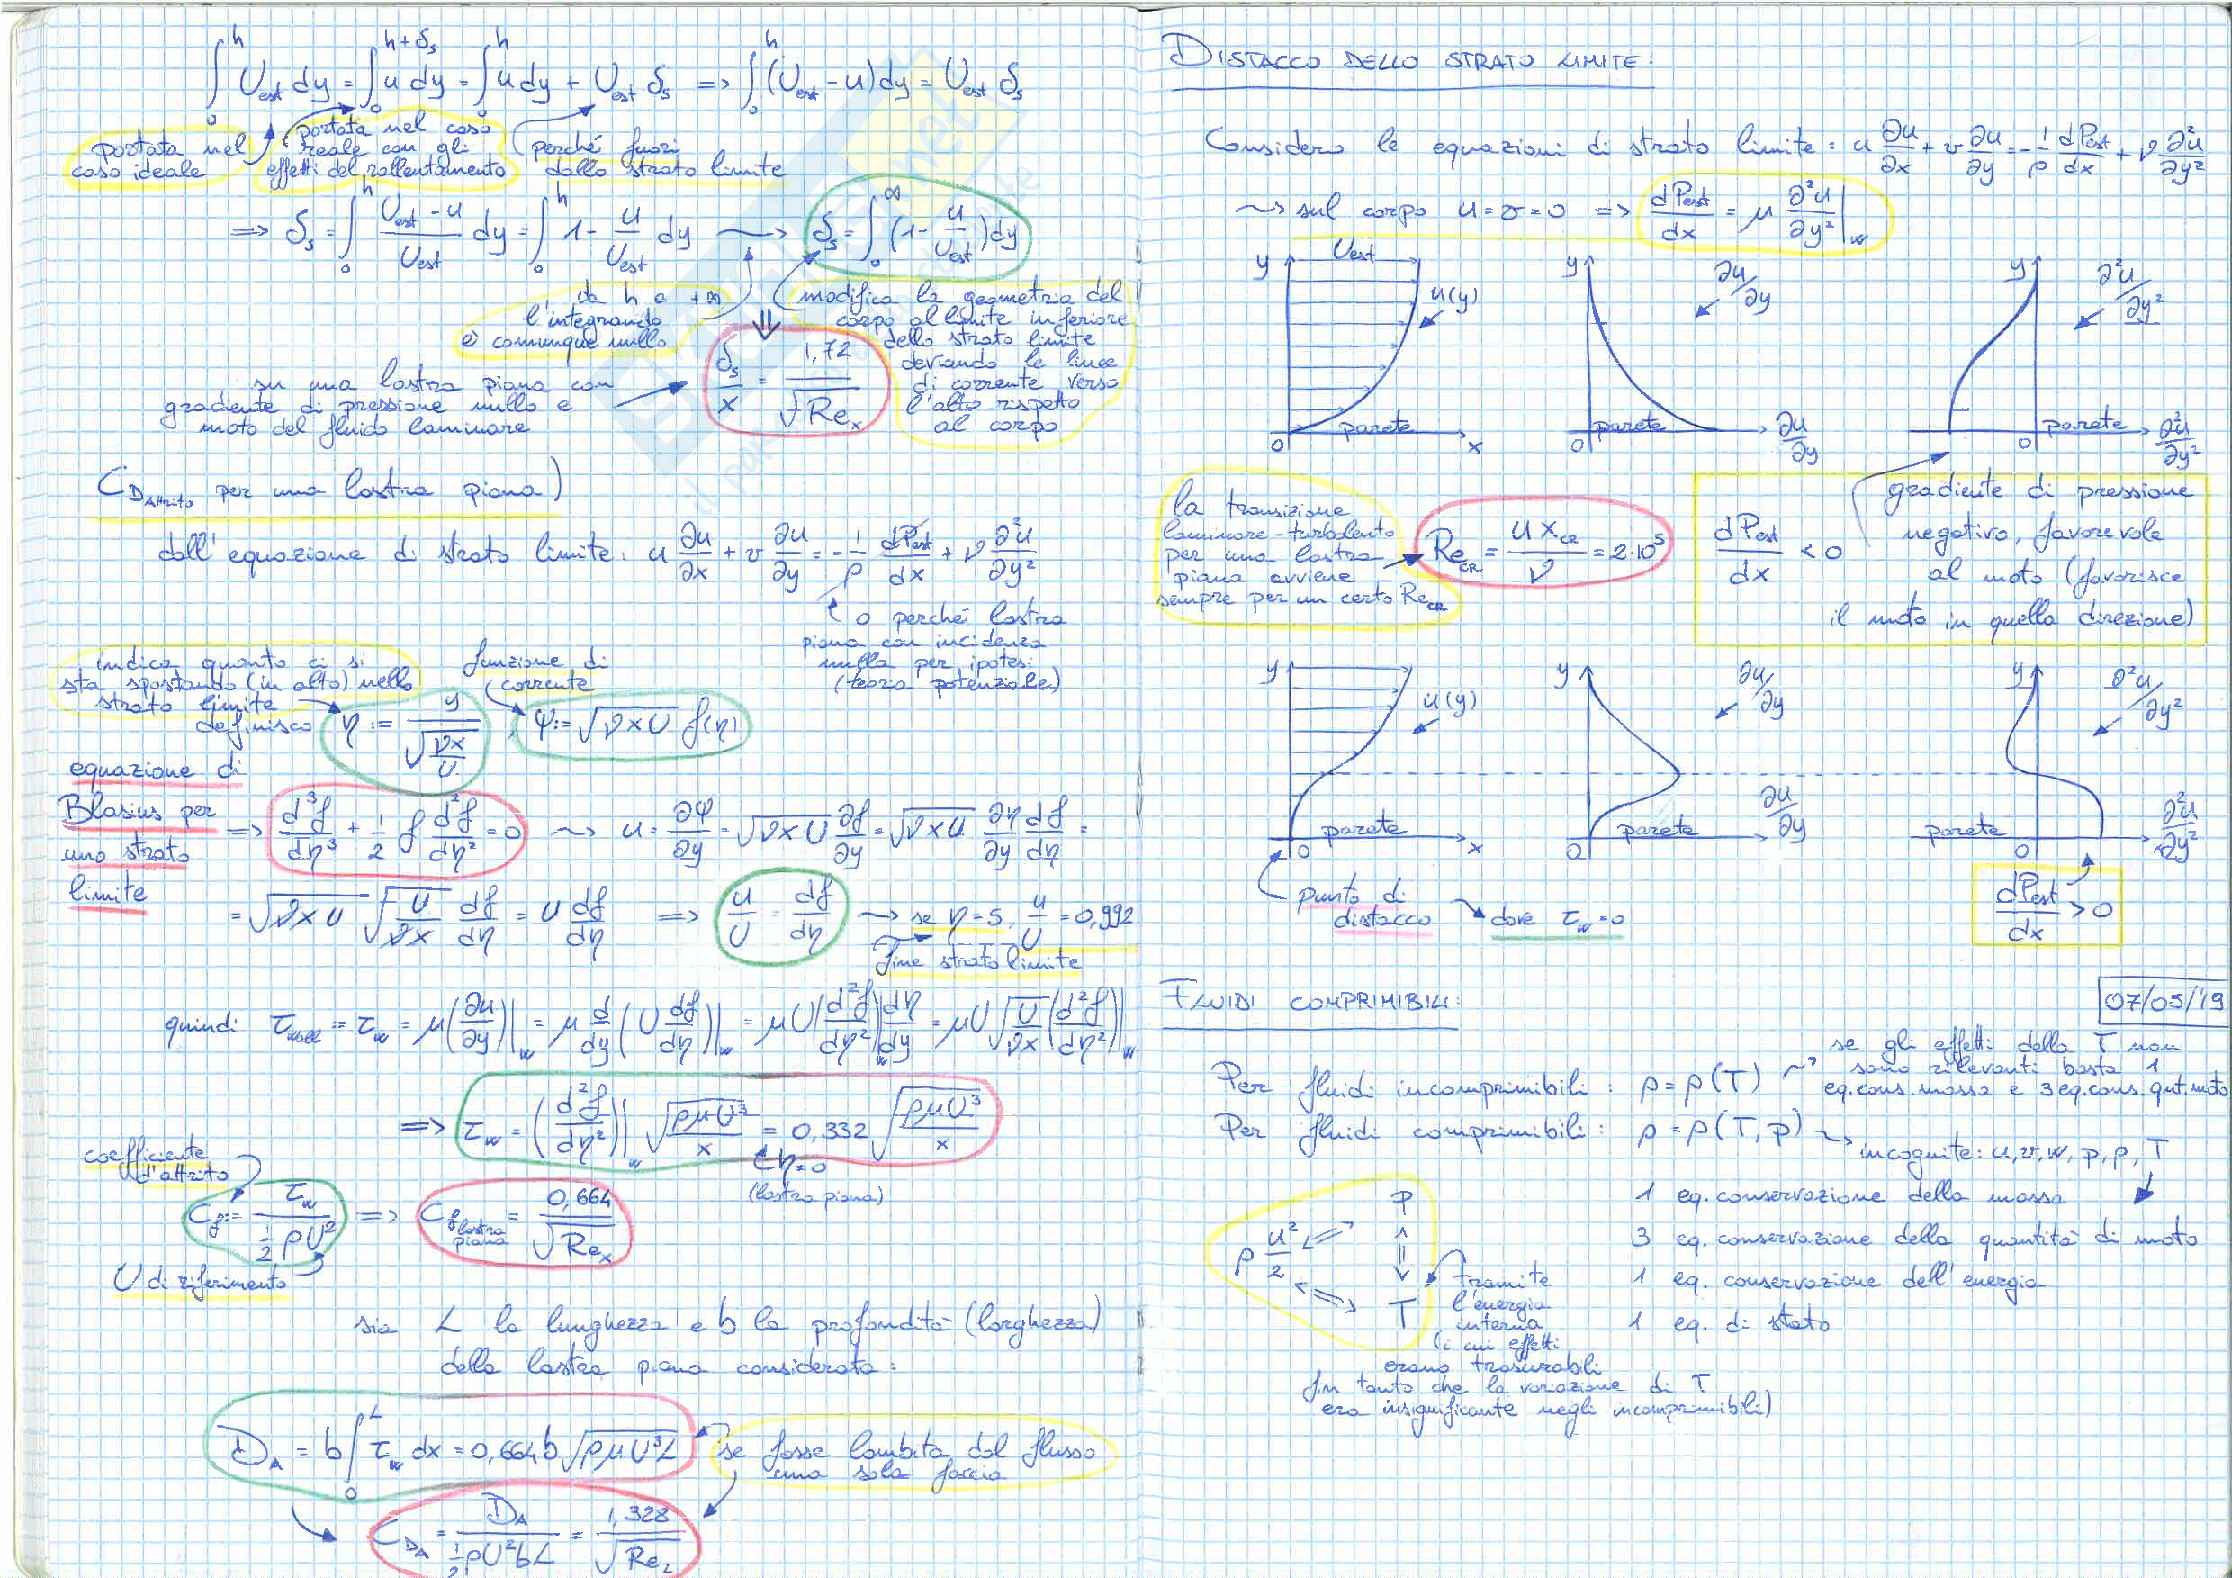 ∫₀ʰ U_est dy = ∫₀^{h+δ_s} u dy = ∫₀ʰ u dy + U_est δ_s => ∫₀ʰ (U_est - u) dy = U_est δ_s
portata nel
caso ideale
portata nel caso
reale con gli
effetti del rallentamento
perché fuori
dallo strato limite
=> δ_s = ∫₀ʰ (U_est - u)/U_est dy = ∫₀ʰ 1 - u/U_est dy ⟿ δ_s = ∫₀^∞ (1 - u/U_est) dy
da h a +∞
l'integrando
è comunque nullo
modifica la geometria del
corpo al limite inferiore
dello strato limite
deviando le linee
di corrente verso
l'alto rispetto
al corpo
su una lastra piana con
gradiente di pressione nullo e
moto del fluido laminare
δ_s/x = 1,72/√Re_x
C_D Attrito per una lastra piana)
dall'equazione di strato limite: u ∂u/∂x + v ∂u/∂y = - 1/ρ dP_est/dx + ν ∂²u/∂y²
0 perché lastra
piana con incidenza
nulla per ipotesi
(teoria potenziale)
indica quanto ci si
sta spostando (in alto) nello
strato limite
definisco η := y/√(νx/U)
funzione di
corrente
ψ := √(νxU) f(η)
equazione di
Blasius per
uno strato
limite
=> d³f/dη³ + 1/2 f d²f/dη² = 0 ⟿ u = ∂ψ/∂y = √(νxU) ∂f/∂y = √(νxU) ∂η/∂y df/dη =
= √(νxU) √(U/νx) df/dη = U df/dη => u/U = df/dη → se η = 5, u/U = 0,992
fine strato limite
quindi τ_wall = τ_w = μ(∂u/∂y)|_w = μ d/dy (U df/dη)|_w = μU(d²f/dη²)|_w dη/dy = μU √(U/νx) (d²f/dη²)|_w
=> τ_w = (d²f/dη²)|_w √(ρμU³/x) = 0,332 √(ρμU³/x)
η=0
(lastra piana)
coefficiente
d'attrito
C_f := τ_w/(1/2 ρU²) => C_f lastra piana = 0,664/√Re_x
U di riferimento
sia L la lunghezza e b la profondità (larghezza)
della lastra piana considerata:
D_A = b ∫₀ᴸ τ_w dx = 0,664 b √(ρμU³L)
se fosse lambita dal flusso
una sola faccia
C_D_A = D_A/(1/2 ρU²bL) = 1,328/√Re_L
DISTACCO DELLO STRATO LIMITE:
Considero le equazioni di strato limite: u ∂u/∂x + v ∂u/∂y = - 1/ρ dP_est/dx + ν ∂²u/∂y²
⟿ sul corpo u = v = 0 => dP_est/dx = μ ∂²u/∂y²|_w
y U_est u(y) parete 0 x
y ∂u/∂y parete 0 ∂u/∂y
y ∂²u/∂y² 0 parete ∂²u/∂y²
la transizione
laminare-turbolento
per una lastra
piana avviene
sempre per un certo Re_CR
Re_CR = U x_CR/ν = 2·10⁵
dP_est/dx < 0
gradiente di pressione
negativo, favorevole
al moto (favorisce
il moto in quella direzione)
y u(y) parete 0 x
y ∂u/∂y parete 0 ∂u/∂y
y ∂²u/∂y² parete 0 ∂²u/∂y²
punto di
distacco
dove τ_w = 0
dP_est/dx > 0
FLUIDI COMPRIMIBILI:
07/05/'19
Per fluidi incomprimibili: ρ = ρ(T) ⟿ se gli effetti della T non
sono rilevanti basta 1
eq. cons. massa e 3 eq. cons. qnt. moto
Per fluidi comprimibili: ρ = ρ(T, p) ⟿ incognite: u, v, w, p, ρ, T
1 eq. conservazione della massa
3 eq. conservazione della quantità di moto
1 eq. conservazione dell'energia
1 eq. di stato
p
ρ u²/2
T
tramite
l'energia
interna
(i cui effetti
erano trascurabili
in tanto che la variazione di T
era insignificante negli incomprimibili)